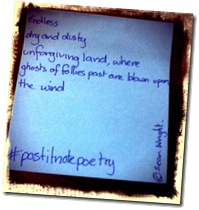 Endless
dry and dusty
unforgiving land, where
ghosts of follies past are blown upon
the wind
#postitnotepoetry
© Sean Wright.